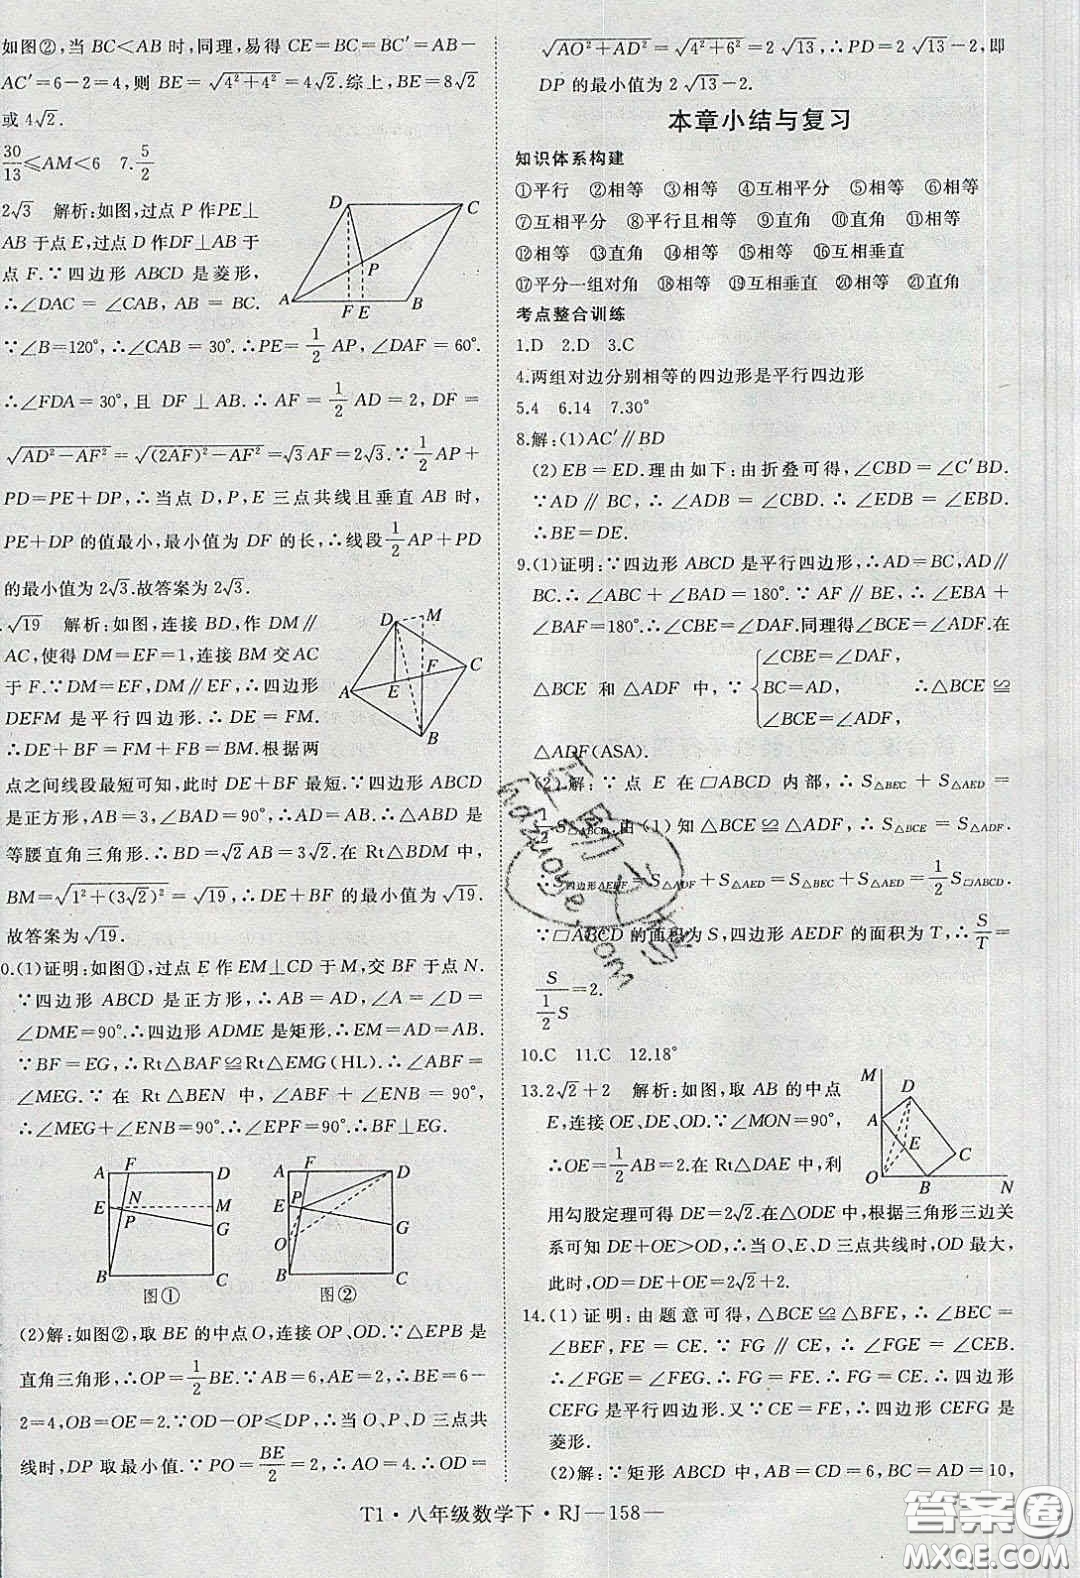 如图②,当 BC<AB 时,同理,易得 CE=BC=BC′=AB-
AC′=6-2=4,则 BE=√(4²+4²)=4√2.综上,BE=8√2
或 4√2.
30/13≤AM<6 7.5/2
2√3 解析:如图,过点 P 作PE⊥
AB 于点 E,过点 D 作DF⊥AB 于
点 F.∵四边形 ABCD 是菱形,
∴∠DAC=∠CAB,AB=BC.
∵∠B=120°,∴∠CAB=30°.∴PE=1/2 AP,∠DAF=60°.
∴∠FDA=30°,且 DF⊥AB.∴AF=1/2 AD=2,DF=
√(AD²-AF²)=√((2AF)²-AF²)=√3 AF=2√3.∵1/2 AP+
PD=PE+DP,∴当点 D,P,E 三点共线且垂直 AB 时,
PE+DP 的值最小,最小值为 DF 的长,∴线段1/2 AP+PD
的最小值为 2√3.故答案为 2√3.
.√19 解析:如图,连接 BD,作 DM∥
AC,使得 DM=EF=1,连接 BM 交AC
于 F.∵DM=EF,DM∥EF,∴四边形
DEFM 是平行四边形.∴DE=FM.
∴DE+BF=FM+FB=BM.根据两
点之间线段最短可知,此时 DE+BF 最短.∵四边形 ABCD
是正方形,AB=3,∠BAD=90°,∴AC⊥BD,∴△ABD 是
等腰直角三角形.∴BD=√2 AB=3√2.在 Rt△BDM 中,
BM=√(1²+(3√2)²)=√19,∴DE+BF 的最小值为 √19.
故答案为 √19.
0.(1)证明:如图①,过点 E 作 EM⊥CD 于 M,交 BF 于点 N.
∵四边形 ABCD 是正方形,∴AB=AD,∠A=∠D=
∠DME=90°.∴四边形 ADME 是矩形.∴EM=AD=AB.
∵BF=EG,∴Rt△BAF≌Rt△EMG(HL).∴∠ABF=
∠MEG.∵在 Rt△BEN 中,∠ABF+∠ENB=90°,
∴∠MEG+∠ENB=90°.∴∠EPF=90°.∴BF⊥EG.
图① 图②
(2)解:如图②,取 BE 的中点 O,连接 OP、OD.∵△EPB 是
直角三角形,∴OP=1/2 BE.∵AB=6,AE=2,∴BE=6-
2=4,OB=OE=2.∵OD-OP≤DP,∴当 O、P、D 三点共
线时,DP 取最小值.∵PO=BE/2=2,∴AO=4.∴OD=
√(AO²+AD²)=√(4²+6²)=2√13,∴PD=2√13-2,即
DP 的最小值为 2√13-2.
本章小结与复习
知识体系构建
①平行 ②相等 ③相等 ④互相平分 ⑤相等 ⑥相等
⑦互相平分 ⑧平行且相等 ⑨直角 ⑩直角 ⑪相等
⑫相等 ⑬直角 ⑭相等 ⑮相等 ⑯互相垂直
⑰平分一组对角 ⑱相等 ⑲互相垂直 ⑳相等 ㉑直角
考点整合训练
1.D 2.D 3.C
4.两组对边分别相等的四边形是平行四边形
5.4 6.14 7.30°
8.解:(1)AC′∥BD
(2)EB=ED.理由如下:由折叠可得,∠CBD=∠C′BD.
∵AD∥BC,∴∠ADB=∠CBD.∴∠EDB=∠EBD.
∴BE=DE.
9.(1)证明:∵四边形 ABCD 是平行四边形,∴AD=BC,AD∥
BC.∴∠ABC+∠BAD=180°.∵AF∥BE,∴∠EBA+
∠BAF=180°.∴∠CBE=∠DAF.同理得∠BCE=∠ADF.在
△BCE 和△ADF 中,∵{∠CBE=∠DAF, BC=AD, ∠BCE=∠ADF, ∴△BCE≌
△ADF(ASA).
(2)解:∵点 E 在▱ABCD 内部,∴S△BEC+S△AED=
1/2 S▱ABCD.由(1)知△BCE≌△ADF,∴S△BCE=S△ADF.
∴S四边形AEDF=S△ADF+S△AED=S△BEC+S△AED=1/2 S▱ABCD.
∵▱ABCD 的面积为 S,四边形 AEDF 的面积为 T,∴S/T=
S/(1/2 S)=2.
10.C 11.C 12.18°
13.2√2+2 解析:如图,取 AB 的中点
E,连接 OE、DE、OD.∵∠MON=90°,
∴OE=1/2 AB=2.在 Rt△DAE 中,利
用勾股定理可得 DE=2√2.在△ODE 中,根据三角形三边关
系可知 DE+OE>OD,∴当 O、E、D 三点共线时,OD 最大,
此时,OD=DE+OE=2√2+2.
14.(1)证明:由题意可得,△BCE≌△BFE,∴∠BEC=
∠BEF,FE=CE.∵FG∥CE,∴∠FGE=∠CEB.
∴∠FGE=∠FEG.∴FG=FE.∴FG=CE.∴四边形
CEFG 是平行四边形.又∵CE=FE,∴四边形 CEFG 是
菱形.
(2)解:∵矩形 ABCD 中,AB=6,AD=10,
T1·八年级数学下·RJ—158—
答案圈
MXQE.COM